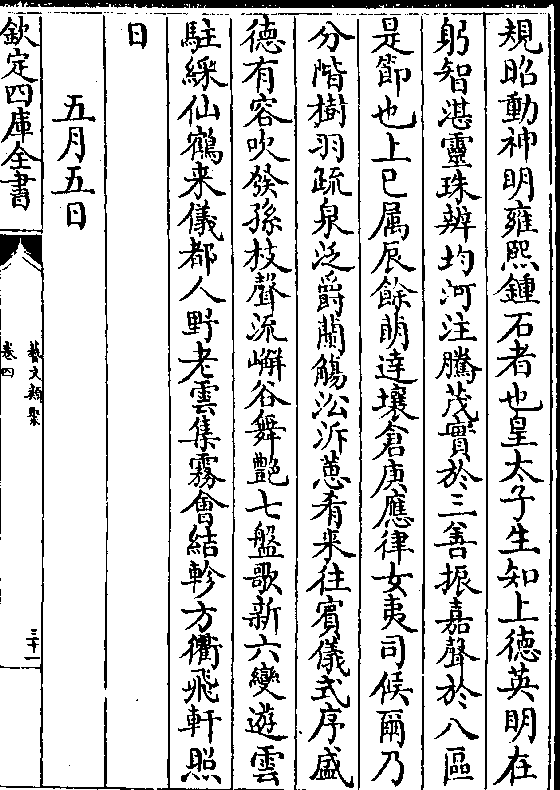 規昭動神明雍熙鍾石者也皇太子生知上德英明在
躬智湛靈珠辨均河注騰茂實於三善振嘉聲於八區
是節也上巳属辰餘萌達壤倉庚應律女夷司候爾乃
分階樹羽疏泉泛爵蘭觴沿泝蕙肴来往賓儀式序盛
德有容吹發孫枝聲流嶰谷舞艶七盤歌新六變遊雲
駐綵仙鶴来儀都人野老雲集霧會結軫方衢飛軒照
日
五月五日
欽定四庫全書
藝文類聚
卷四
三十一